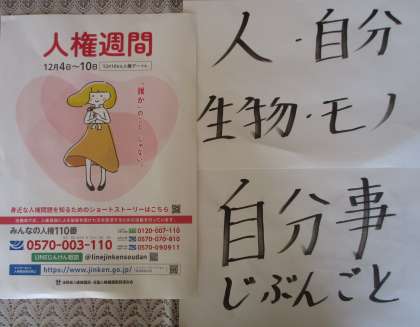 人権週間
12月4日～10日
12月10日は人権デーです。
「誰か」のこと じゃない。
身近な人権問題を知るためのショートストーリーはこちら
みんなの人権110番
0570-003-110
0120-007-110
0570-070-810
0570-090911
LINEじんけん相談 @linejinkensoudan
https://www.jinken.go.jp/
人・自分
生物・モノ
自分事
じぶんごと